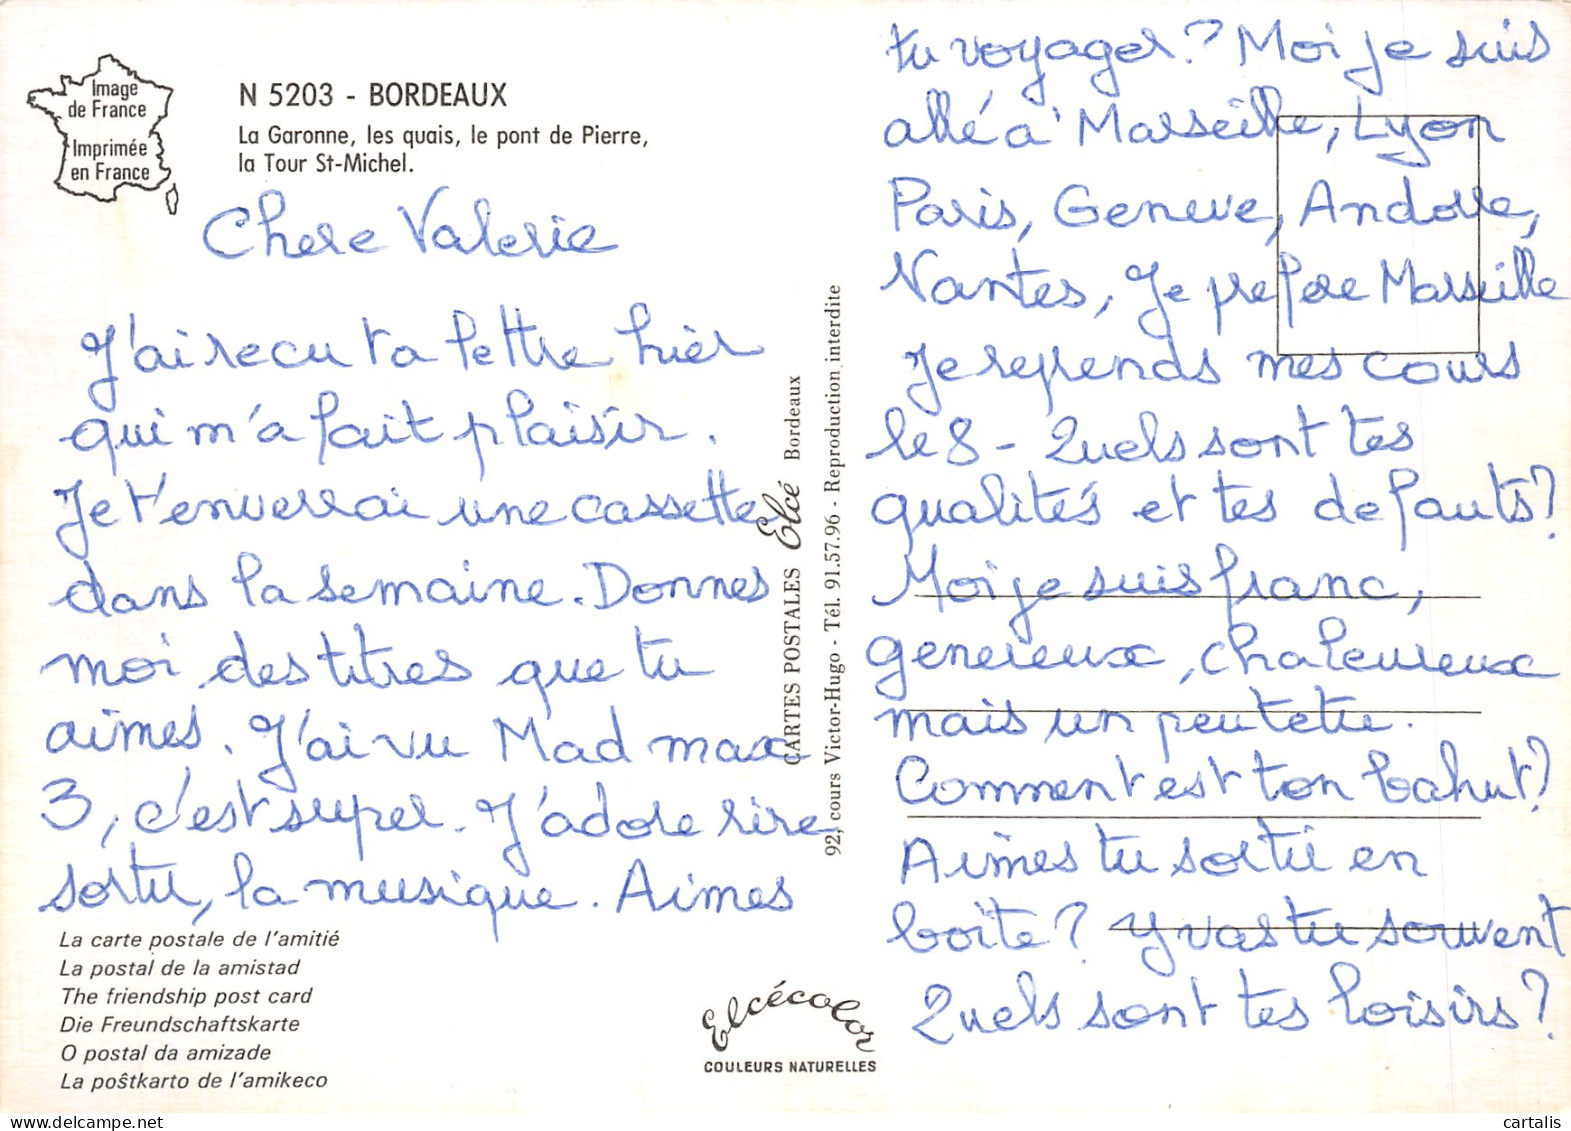 Image
de France
Imprimée
en France
N 5203 - BORDEAUX
La Garonne, les quais, le pont de Pierre,
la Tour St-Michel.
Chere Valerie
J'ai recu ta lettre hier
qui m'a fait plaisir.
Je t'enverrai une cassette
dans la semaine. Donnes
moi des titres que tu
aimes. J'ai vu Mad max
3, c'est super. J'adore rire
sortir, la musique. Aimes
La carte postale de l'amitié
La postal de la amistad
The friendship post card
Die Freundschaftskarte
O postal da amizade
La poŝtkarto de l'amikeco
CARTES POSTALES Elcé Bordeaux
92, cours Victor-Hugo - Tél. 91.57.96 - Reproduction interdite
Elcécolor
COULEURS NATURELLES
tu voyager? Moi je suis
allé à Marseille, Lyon
Paris, Geneve, Andorre,
Nantes, Je prefere Marseille
Je reprends mes cours
le 8 - Quels sont tes
qualités et tes defauts?
Moi je suis franc,
genereux, chaleureux
mais un peu tetu.
Comment est ton bahut?
Aimes tu sortir en
boîte? Y vas tu souvent
Quels sont tes loisirs?
cartalis